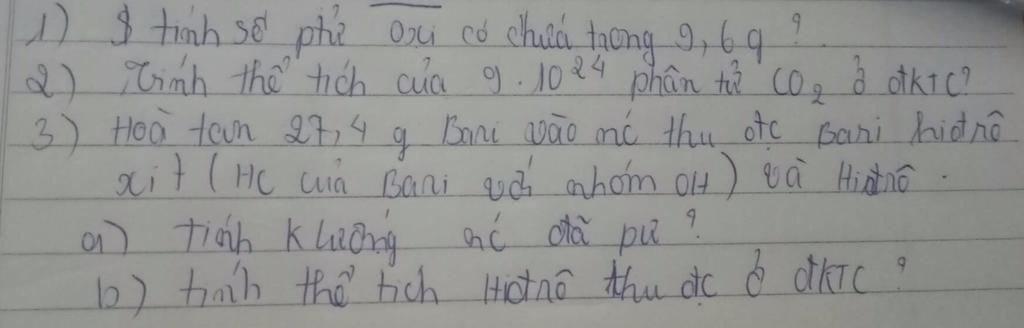 1) tính số phử Oxi có chứa trong 9,6g ?
2) Tính thể tích của 9.10²⁴ phân tử CO₂ ở đKTC?
3) Hoà tan 27,4 g Bari vào nć thu đtc Bari hiđrô
xit (HC của Bari với nhóm OH) và Hiđrô.
a) tính k lượng nć đã pư ?
b) tính thể tích Hiđrô thu đc ở đKTC ?